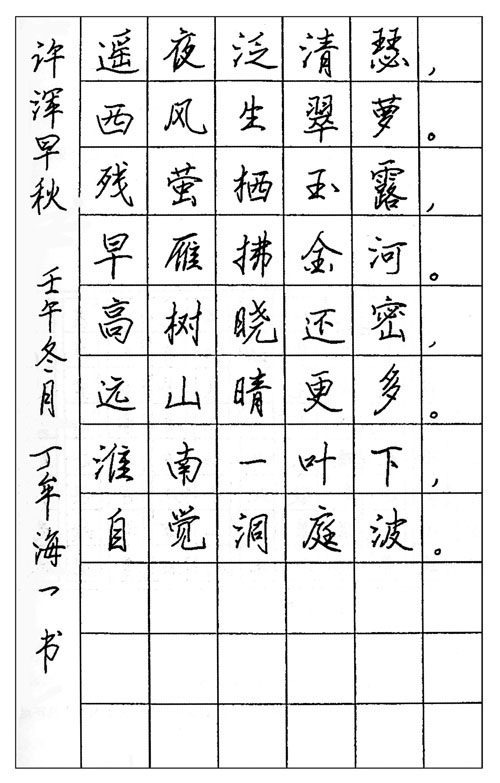 遥夜泛清瑟，
西风生翠萝。
残萤栖玉露，
早雁拂金河。
高树晓还密，
远山晴更多。
淮南一叶下，
自觉洞庭波。
许浑早秋 壬午冬月 丁牟海一书